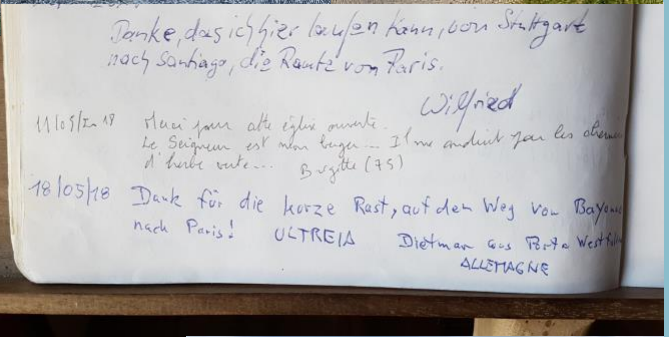 Danke, das ich hier laufen kann, von Stuttgart
nach Santiago, die Route von Paris.
Wilfried
11/05/2018 Merci pour cette église ouverte.
Le Seigneur est mon berger... Il me conduit par les chemins
d'herbe verte... Brigitte (75)
18/05/18 Dank für die kurze Rast, auf dem Weg von Bayonne
nach Paris! ULTREIA Dietmar aus Porta Westfalica
ALLEMAGNE